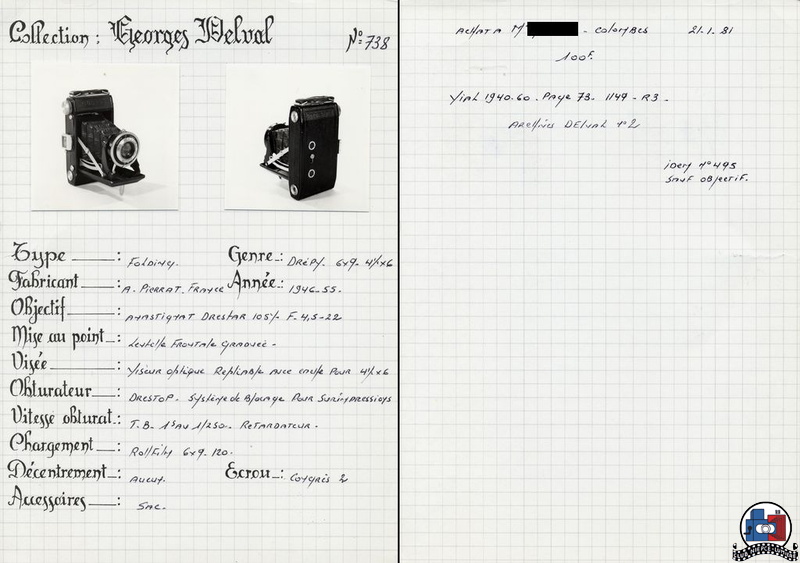 Collection : Georges Delval Nº 738
Type : Folding.
Genre : Drépy. 6x9. 4½x6
Fabricant : A. Pierrat. France
Année : 1946-55.
Objectif : Anastigmat Drestar 105% F-4,5-22
Mise au point : Lentille Frontale Graduée -
Visée : Viseur optique Repliable avec cache Pour 4½x6
Obturateur : Drestop. Système de Blocage Pour Surimpressions
Vitesse obturat. : T.B. 1s au 1/250. Retardateur.
Chargement : Rollfilm 6x9. 120.
Décentrement : Aucun.
Ecrou : Congrès 2
Accessoires : Sac.
Achat à Mr - Colombes 21.1.81
100F.
Vial 1940.60. Page 73. 1149 - R3.
Archives Delval nº2
idem nº495
sauf objectif.